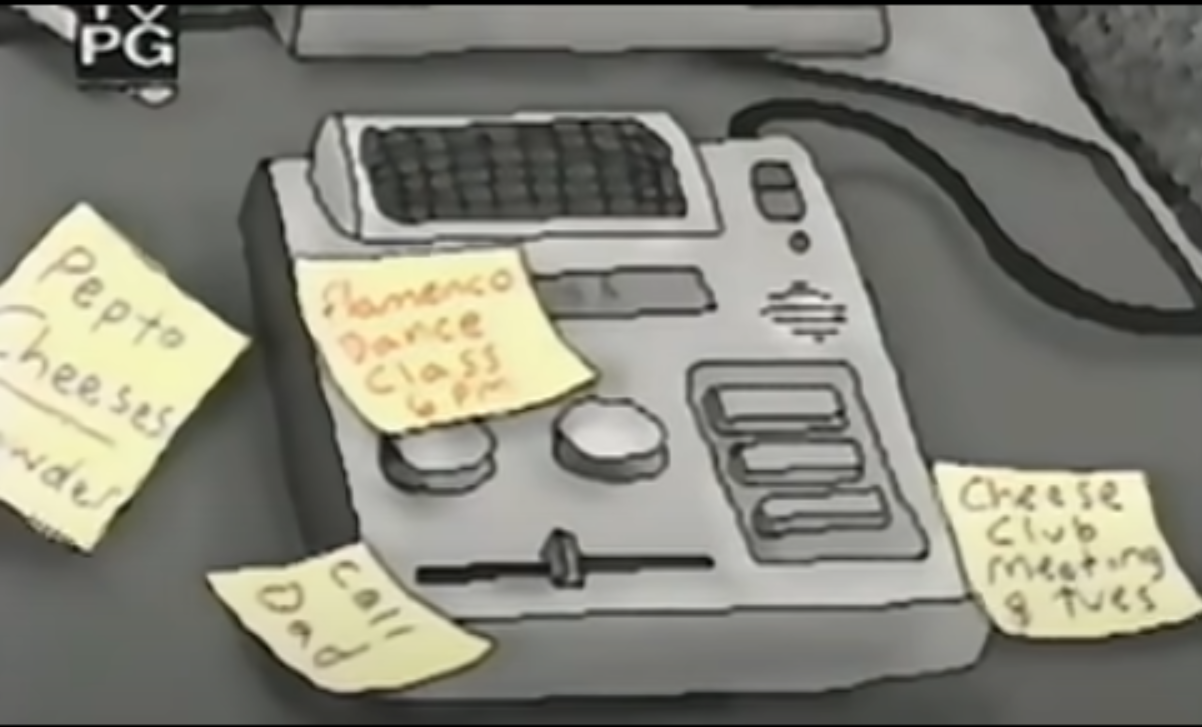 PG
Pepto
Cheeses
Flamenco
Dance
Class
6 PM
Call
Dad
Cheese
Club
Meeting
8 Tues